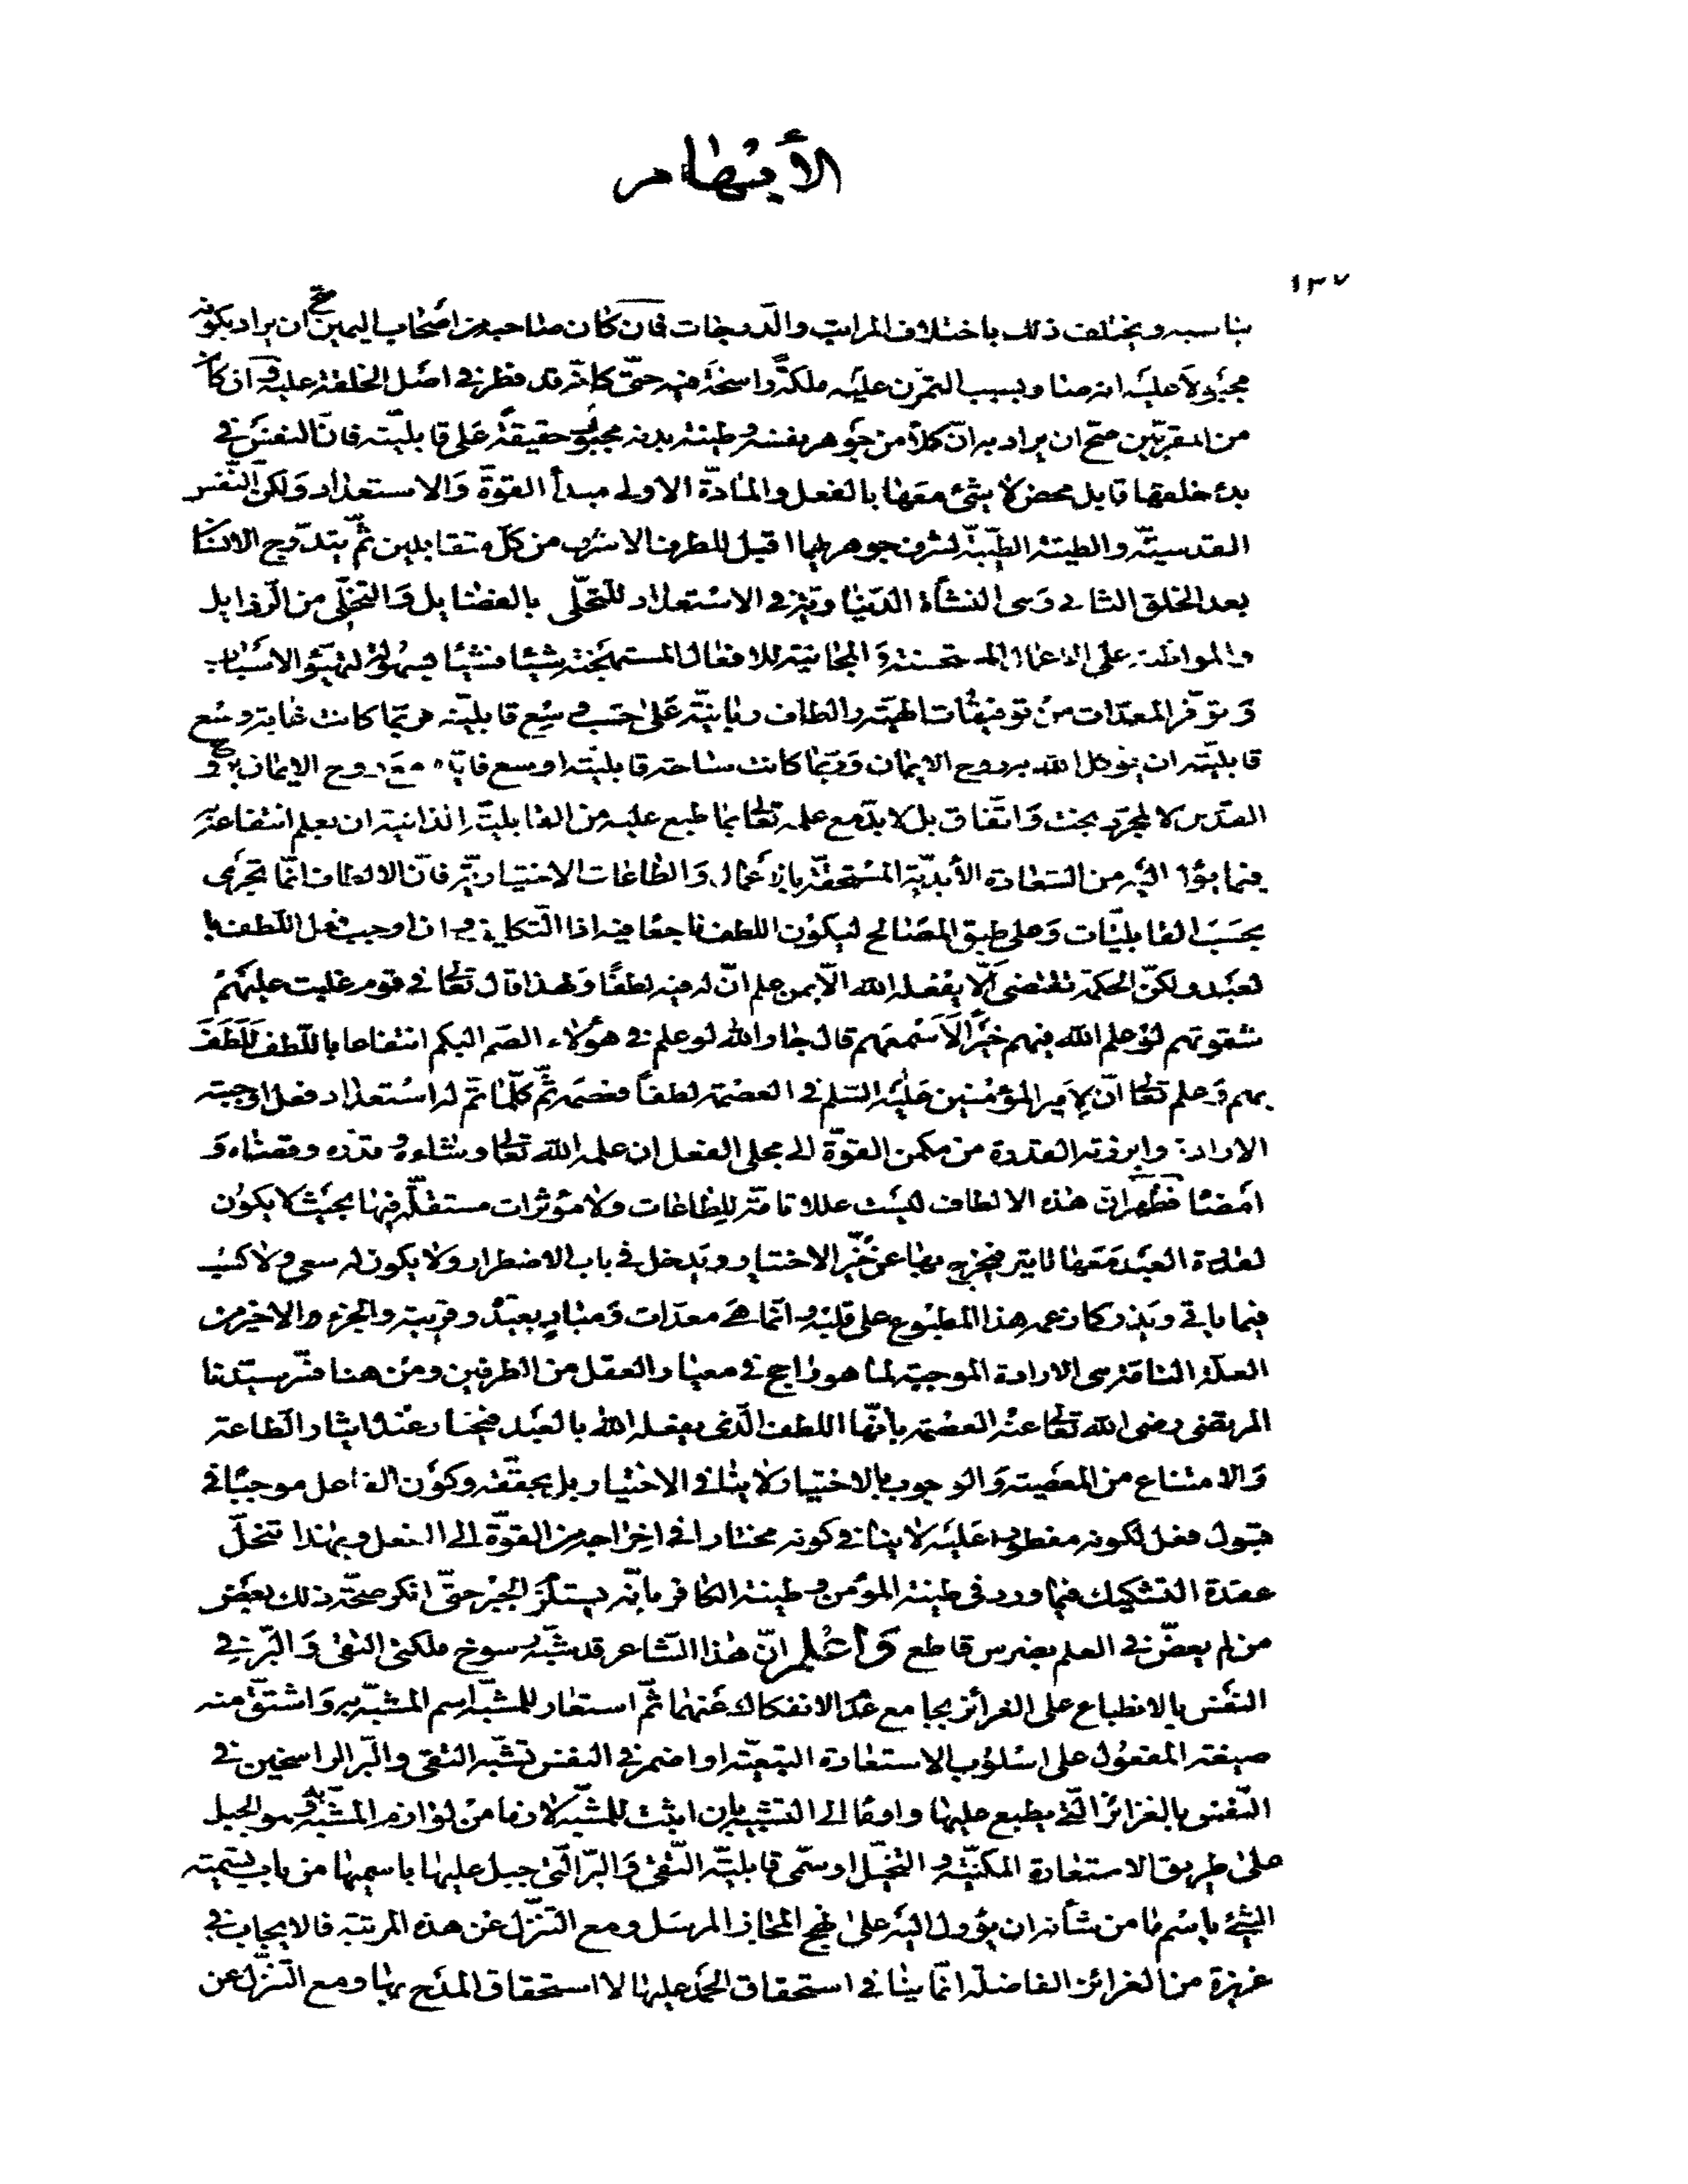 الأيهام
١٣٧
يناسبه ويختلف ذلك باختلاف المراتب والدرجات فان كان صاحبه من أصحاب اليمين صح ان يراد بكونه
مجبولا عليه وبسبب التمرن عليه ملكة راسخة فيه حتى كانه قد فطر في اصل الخلقة عليه وان كان
من المقربين صح ان يراد به انّ كلا من جوهر نفسه وطينة بدنه مجبول حقيقة على قابليته فانّ النفس في
بدء خلقها قابل محض لا شئ معها بالفعل والمادّة الاولى مبدأ القوّة والاستعداد ولكنّ النفس
القدسيّة والطينة الطيّبة لشرف جوهرهما اقبل للطرف الاشرف من كلّ متقابلين ثمّ يتدرّج الانسان
بعد الخلق الثاني وهي النشأة الدنيا وتيزه في الاستعداد للتحلّي بالفضايل والتخلّي من الرذايل
والمواظبة على الاعمال المستحسنة والمجانبة للافعال المستهجنة شيئا فشيئا بسهولة لتهيّؤ الاسباب
وتوفّر المعدّات من توفيقات الهيّة والطاف ربانيّة على حسب وسع قابليته فربّما كانت غاية وسع
قابليّته ان يتوكل الله بروح الايمان وربّما كانت ساحة قابليّته اوسع مع روح الايمان بروح
القدس لا لمجرّد بخت واتّفاق بل لا بدّ مع علمه تعالى بما طبع عليه من القابليّة الذاتية ان يعلم انتفاعه
فيما يؤل اليه من السعادة الأبديّة المستحقّة بالأعمال والطاعات الاختياريّة فانّ الالطاف انّما تجرى
بحسب القابليّات وعلى طبق المصالح ليكون اللطف ناجعا فيه اذا التكليف وان اوجب فعل اللطف با
لعبد ولكنّ الحكمة تقتضى ألّا يفعله الله الّا بمن علم انّ له فيه لطفًا ولهذا قال تعالى في قوم غلبت عليهم
شقوتهم لو علم الله فيهم خيرًا لأسمعهم قال جار الله لو علم في هؤلاء الصم البكم انتفاعا باللّطف للطف
بهم وعلم تعالى انّ لأمير المؤمنين عليه السّلم في العصمة لطفاً فعصمه ثمّ كلّما تمّ له استعداد فعل اوجبته
الارادة وابرزته القدرة من مكمن القوّة الى مجلى الفعل ان علمه الله تعالى وشاءه وقدّره وقضاه و
امضا فظهر انّ هذه الالطاف ليست عللا تامّة للطاعات ولا مؤثرات مستقلّة فيها بحيث لا يكون
لقدرة العبد معها تاثير فيخرج بها عن حيّز الاختيار ويدخل في باب الاضطرار ولا يكون له سعي ولا كسب
فيما ياتي ويذر كما زعمه هذا المطبوع على قلبه وانّما هي معدّات ومبادٍ بعيدة وقريبة والجزء الاخير من
العلّة التامّة هى الارادة الموجبة لما هو راجح في معيار العقل من الطرفين ومن هنا فسّر سيّدنا
المرتضى رضى الله تعالى عنه العصمة بانّها اللطف الّذي يفعله الله بالعبد فيختار عنده ايثار الطاعة
والامتناع من المعصية والوجوب بالاختيار لا ينافي الاختيار بل يحقّقه وكون الفاعل موجبًا في
قبول فعل لكونه مفطورا عليه لا ينافي كونه مختارا في اخراجه من القوّة الى الفعل وبهذا تنحلّ
عقدة التشكيك فيما ورد في طينة المؤمن وطينة الكافر بانّه يستلزم الجبر حتّى انكر صحّة ذلك بعض
من لم يعضّ في العلم بضرس قاطع واعلم انّ هذا الشاعر قد شبّه رسوخ ملكتى التقى والبرّ في
النفس بالانطباع على الغرائز بجامع عدم الانفكاك عنهما ثمّ استعار للمشبّه اسم المشبّه به واشتقّ منه
صيغة المفعول على اسلوب الاستعارة التبعيّة او اضمر في النفس تشبّه التقى والبّر الراسخين في
النّفس بالغرائز الّتي يطبع عليها واومًا الى التشبيه بان اثبت للمشبّه لازما من لوازم المشبّه به وهو الجبل
على طريق الاستعارة المكنيّة والتخيّل او سمّى قابليّة التّقى والبرّ الّتي جبل عليها باسميها من باب تسمية
الشئ باسم ما من شأنه ان يؤول اليه على نهج المجاز المرسل ومع التنزّل عن هذه المرتبة فالايجاب في
غريزة من الغرائز الفاضلة انّما ينافي استحقاق الحمد عليها لا استحقاق المدح بها ومع التنزّل عن